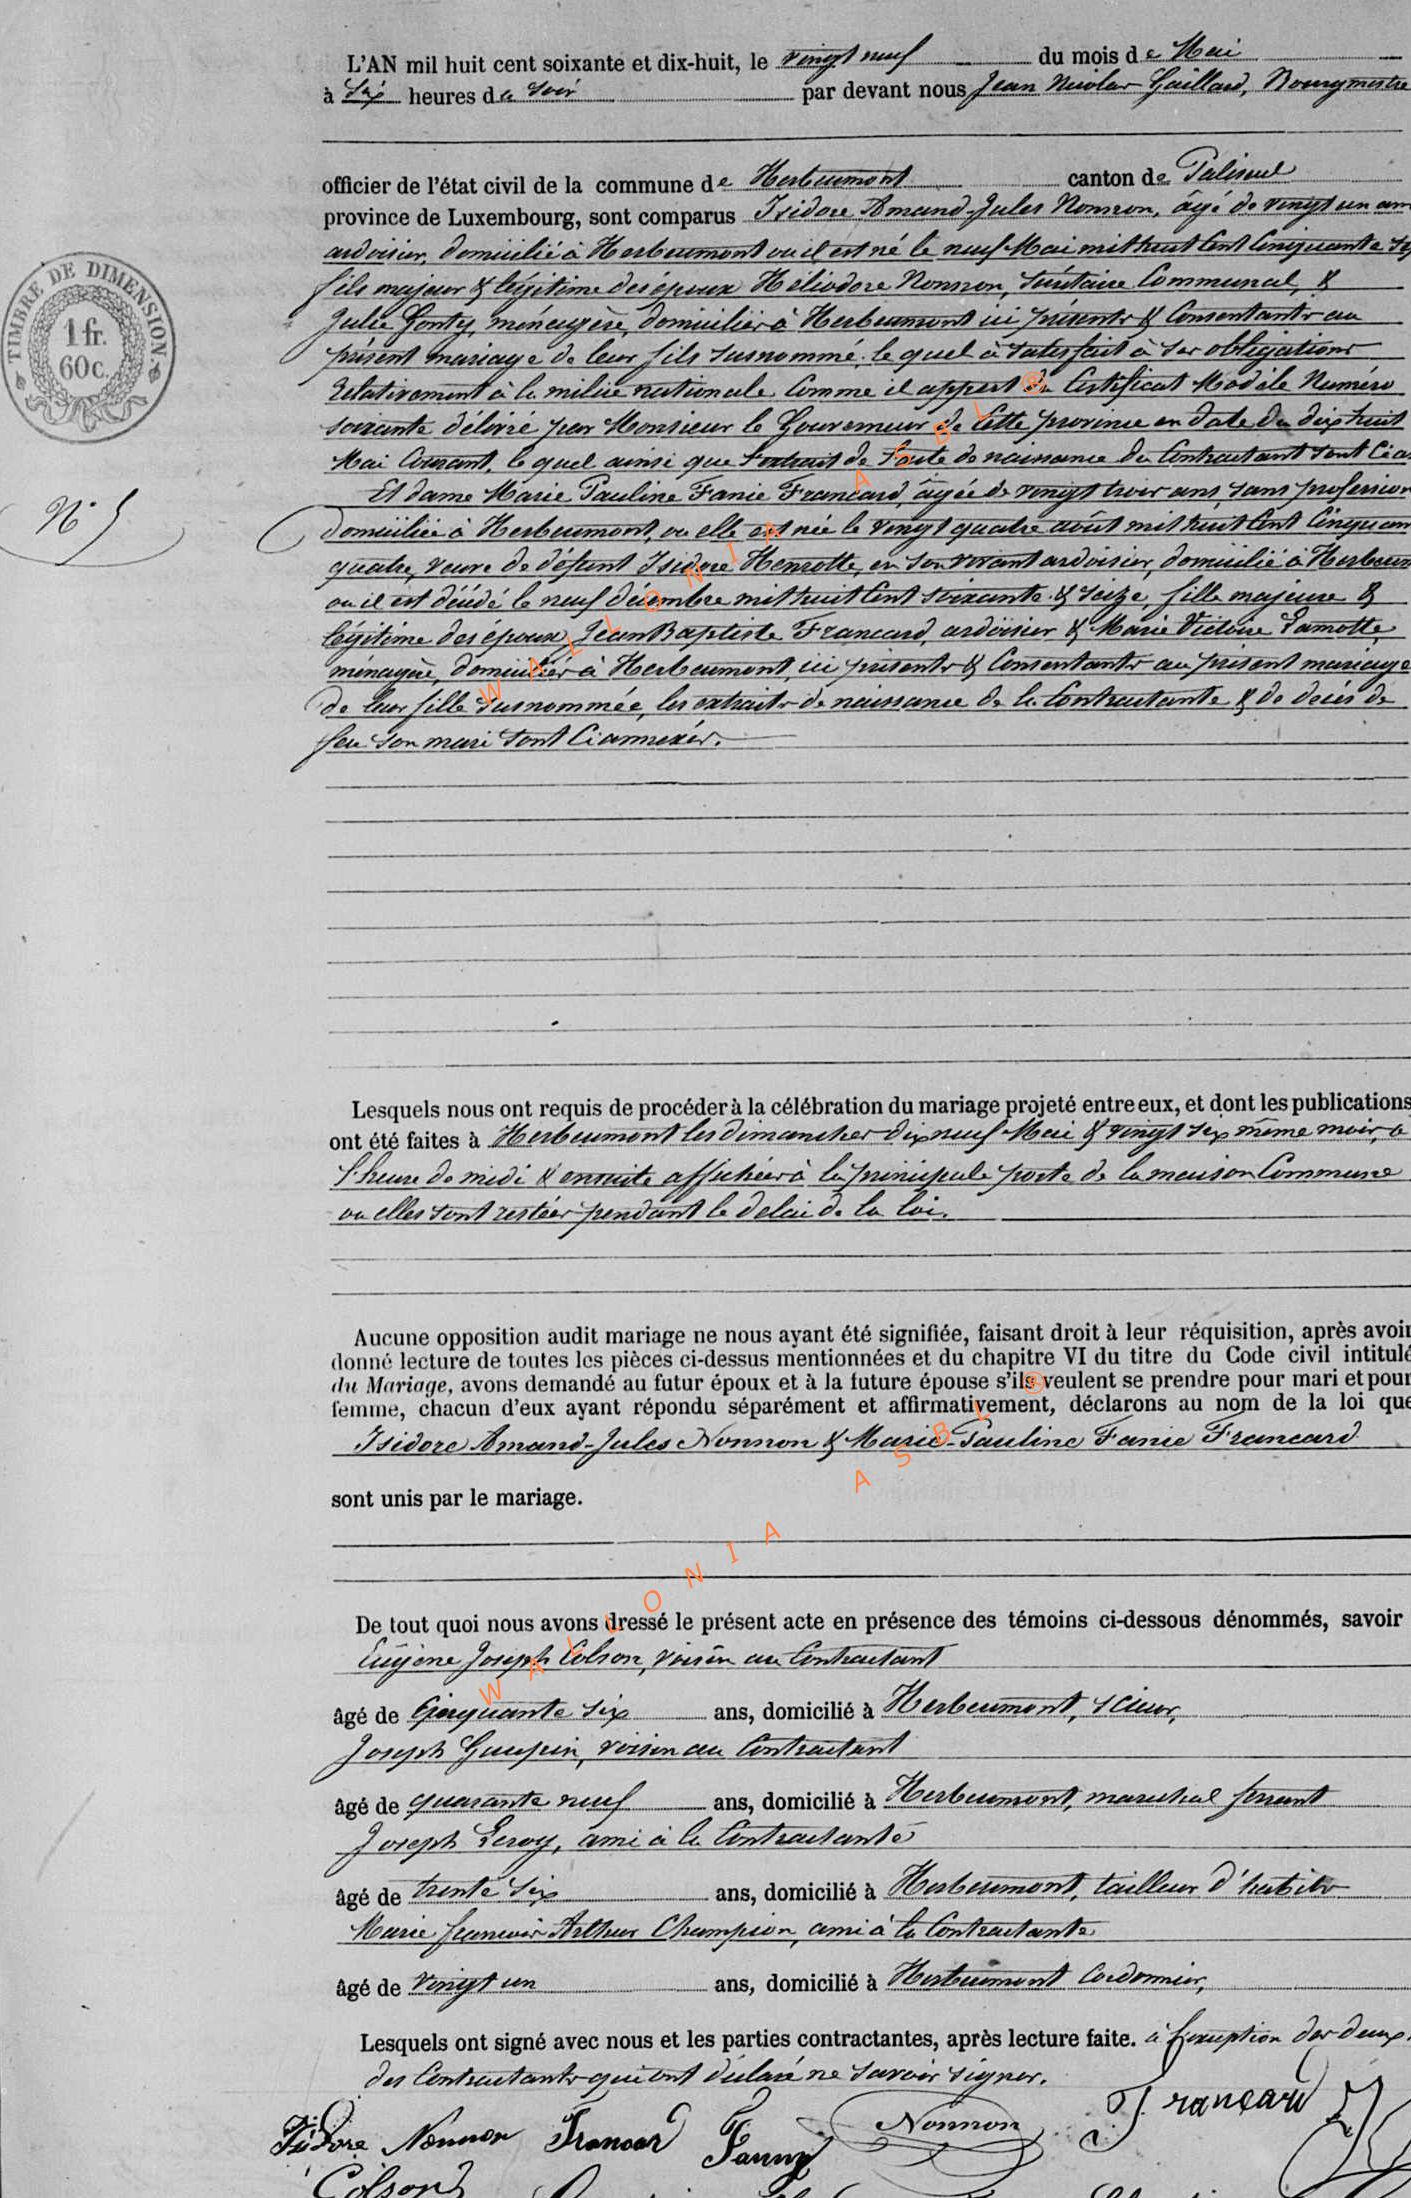 L'AN mil huit cent soixante et dix-huit, le vingt neuf du mois de Mai
à six heures du soir par devant nous Jean Nicolas Gaillard, Bourgmestre
officier de l'état civil de la commune de Herbeumont canton de Paliseul
province de Luxembourg, sont comparus Isidore Amand-Jules Nonnon, âgé de vingt un ans
ardoisier, domicilié à Herbeumont ou il est né le neuf Mai mil huit cent cinquante
fils majeur & légitime des époux Héliodore Nonnon, secrétaire Communal, &
Julie Gonty, ménagère, domiciliés à Herbeumont ici présents & Consentants au
TIMBRE DE DIMENSION.
1 fr.
60c.
présent mariage de leur fils susnommé, le quel à satisfait à ses obligations
relativement à la milice nationale comme il appert du Certificat Modèle Numéro
soixante délivré par Monsieur le Gouverneur de cette province en date du dix huit
Mai Courant, le quel ainsi que l'extrait de l'acte de naissance du Contractant sont
Et dame Marie Pauline Fanie Francard, âgée de vingt trois ans, sans profession
N° 5
domiciliée à Herbeumont, ou elle est née le vingt quatre août mil huit cent
quatre, veuve de défunt Isidore Henrotte, en son vivant ardoisier, domicilié à
ou il est décédé le neuf décembre mil huit cent soixante & seize, fille majeure &
légitime des époux Jean Baptiste Francard, ardoisier & Marie Victoire Lamotte,
ménagère, domiciliés à Herbeumont, ici présents & Consentants au présent mariage
de leur fille susnommée, les extraits de naissance de la Contractante & de décès de
feu son mari sont Ciannexés.
Lesquels nous ont requis de procéder à la célébration du mariage projeté entre eux, et dont les publications
ont été faites à Herbeumont les dimanches dix neuf Mai & vingt six même mois, à
l'heure de midi & ensuite affichées à la principale porte de la maison Commune
ou elles sont restées pendant le delai de la loi.
Aucune opposition audit mariage ne nous ayant été signifiée, faisant droit à leur réquisition, après avoir
donné lecture de toutes les pièces ci-dessus mentionnées et du chapitre VI du titre du Code civil intitulé
du Mariage, avons demandé au futur époux et à la future épouse s'ils veulent se prendre pour mari et pour
femme, chacun d'eux ayant répondu séparément et affirmativement, déclarons au nom de la loi que
Isidore Amand-Jules Nonnon & Marie-Pauline Fanie Francard
sont unis par le mariage.
De tout quoi nous avons dressé le présent acte en présence des témoins ci-dessous dénommés, savoir
Eugène Joseph Colson, voisin au Contractant
âgé de Cinquante six ans, domicilié à Herbeumont, scieur,
Joseph Guepin, voisin au Contractant
âgé de quarante neuf ans, domicilié à Herbeumont, maréchal ferrant
Joseph Leroy, ami à la Contractante
âgé de trente six ans, domicilié à Herbeumont, tailleur d'habits
Marie françois Arthur Champion, ami à la Contractante
âgé de vingt un ans, domicilié à Herbeumont Cordonnier,
Lesquels ont signé avec nous et les parties contractantes, après lecture faite. à l'exception des deux
des Contractants qui ont déclaré ne savoir signer.
Isidore Nonnon Francard Fanny Nonnon J Francard
Colson
WALLONIA ASBL ®
WALLONIA ASBL ®